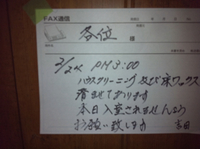 FAX通信
各位 様
2/24 PM3:00
ハウスクリーニング及び床ワックス
済ませております
本日入室されませんよう
お願い致します 吉田